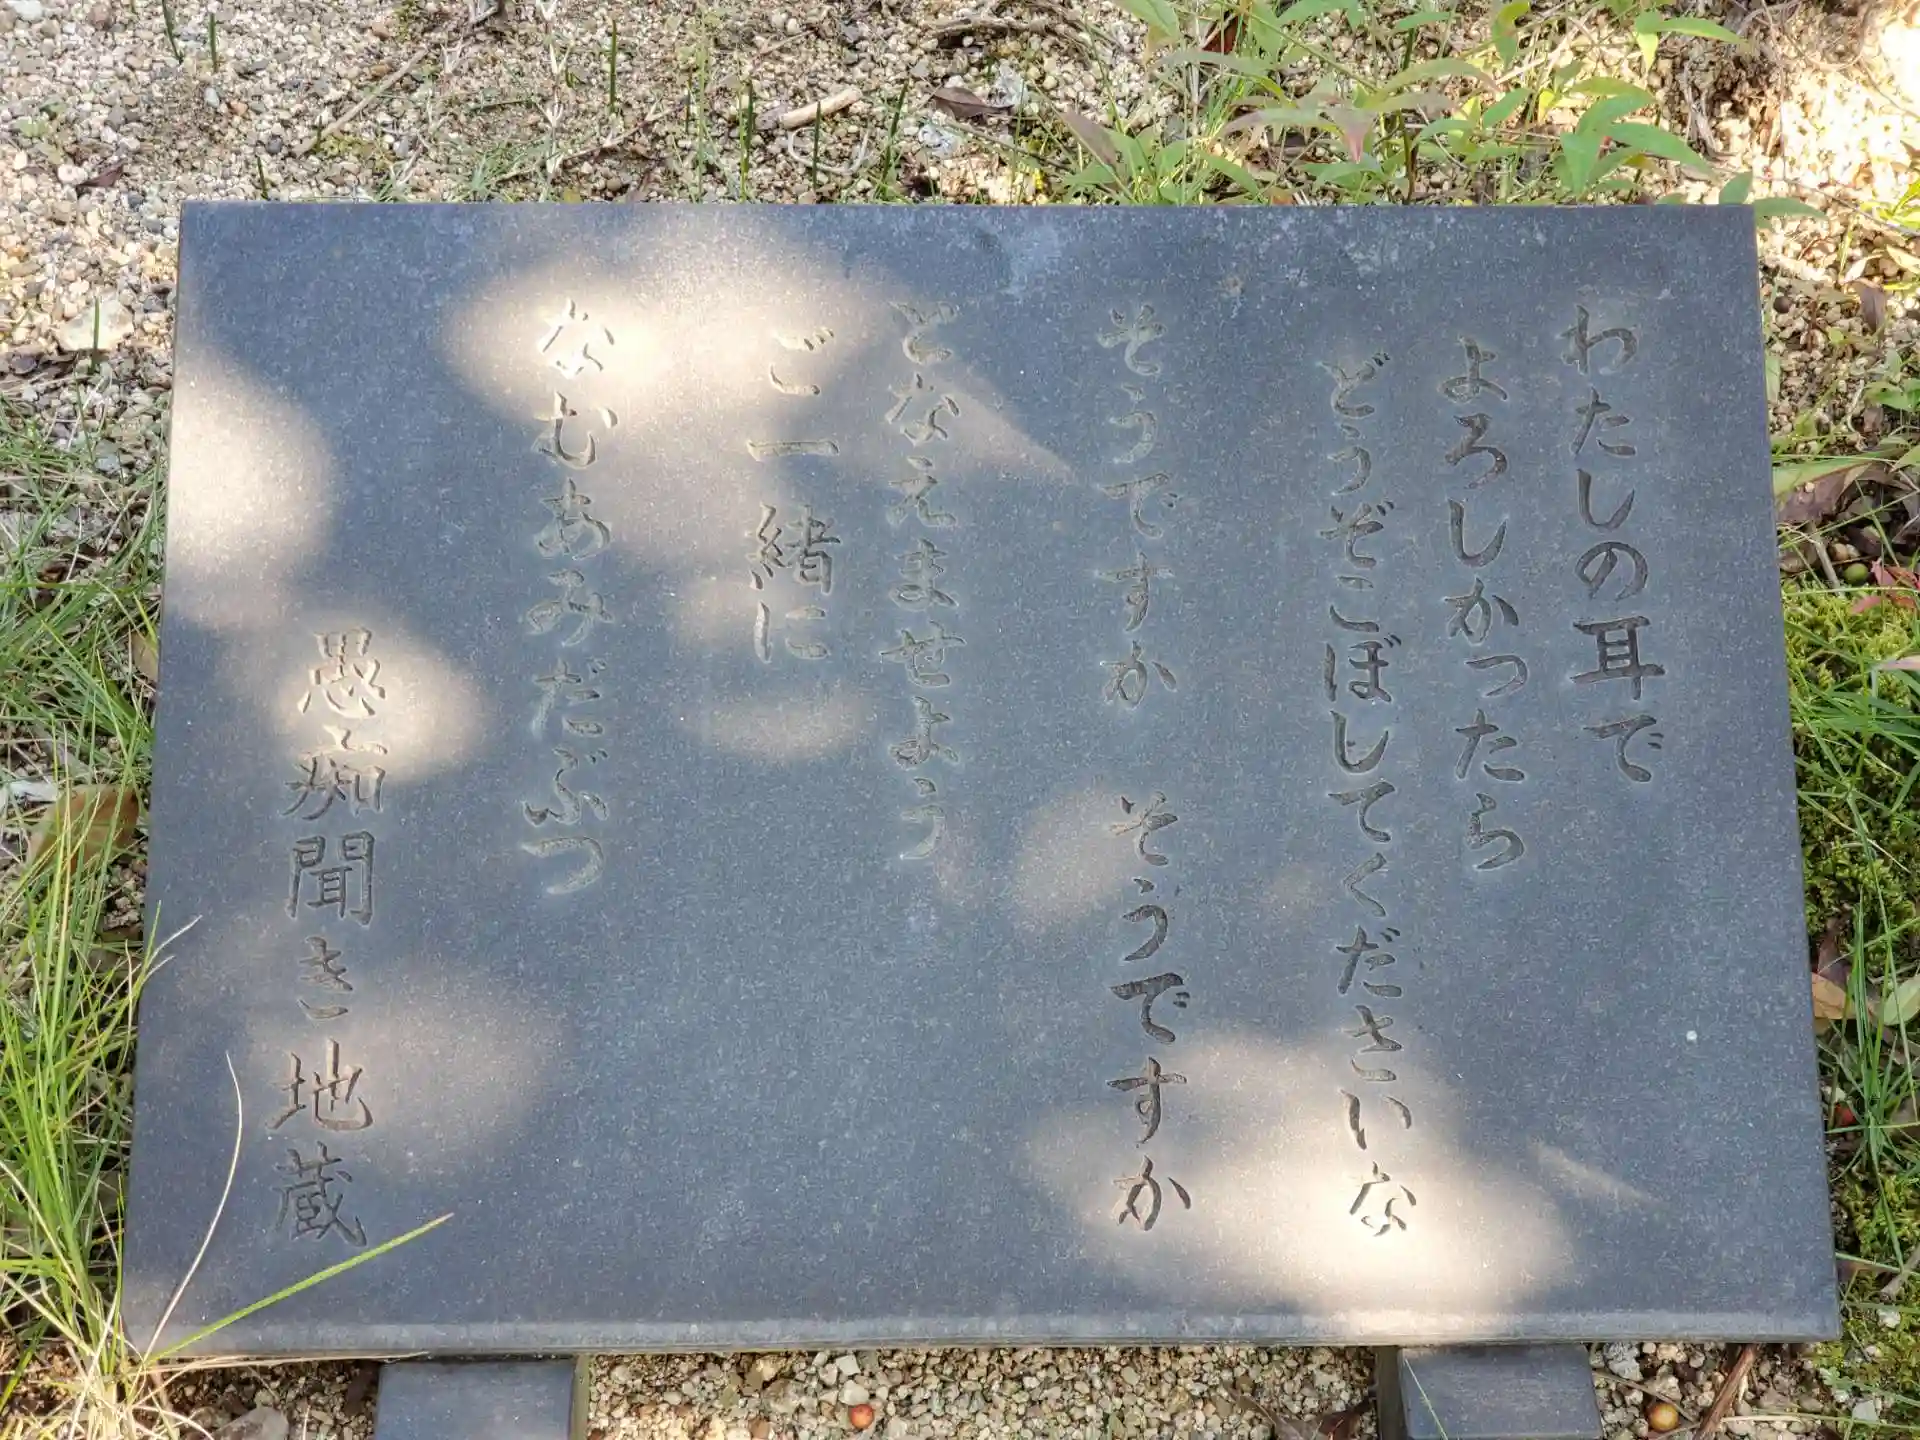 わたしの耳で
よろしかったら
どうぞこぼしてくださいな
そうですか そうですか
となえませよう
ご一緒に
なむあみだぶつ
愚痴聞き地蔵